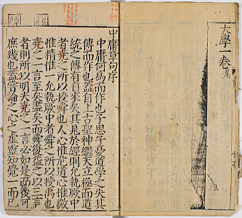 大學一卷
中庸章句序
中庸何為而作也子思子憂道學之失其
傳而作也蓋自上古聖神繼天立極而道
統之傳有自來矣其見於經則允執厥中
者堯之所以授舜也人心惟危道心惟微
惟精惟一允執厥中者舜之所以授禹也
堯之一言至矣盡矣而舜復益之以三言
者則所以明夫堯之一言必如是而後可
庶幾也蓋嘗論之心之虛靈知覺一而已